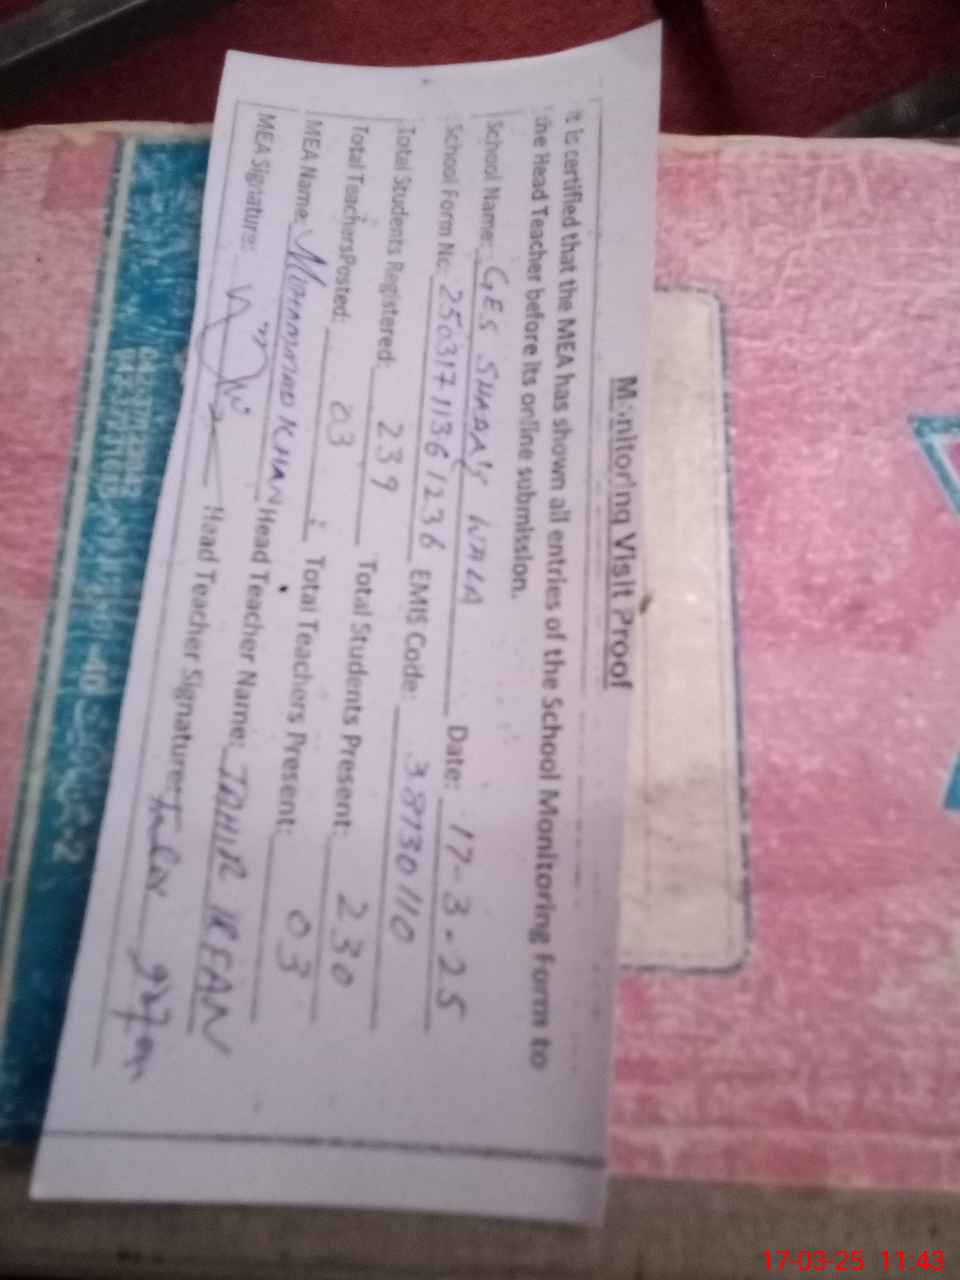 Monitoring Visit Proof
It is certified that the MEA has shown all entries of the School Monitoring Form to
the Head Teacher before its online submission.
School Name: GES WALA Date: 17-3-25
School Form No: 25031711361236 EMIS Code: 38130110
Total Students Registered: 239 Total Students Present: 230
Total Teachers Posted: 03 Total Teachers Present: 03
MEA Name MOHAMMAD KHAN Head Teacher Name: TAHIR IRFAN
MEA Signature: Head Teacher Signature:
17-03-25 11:43